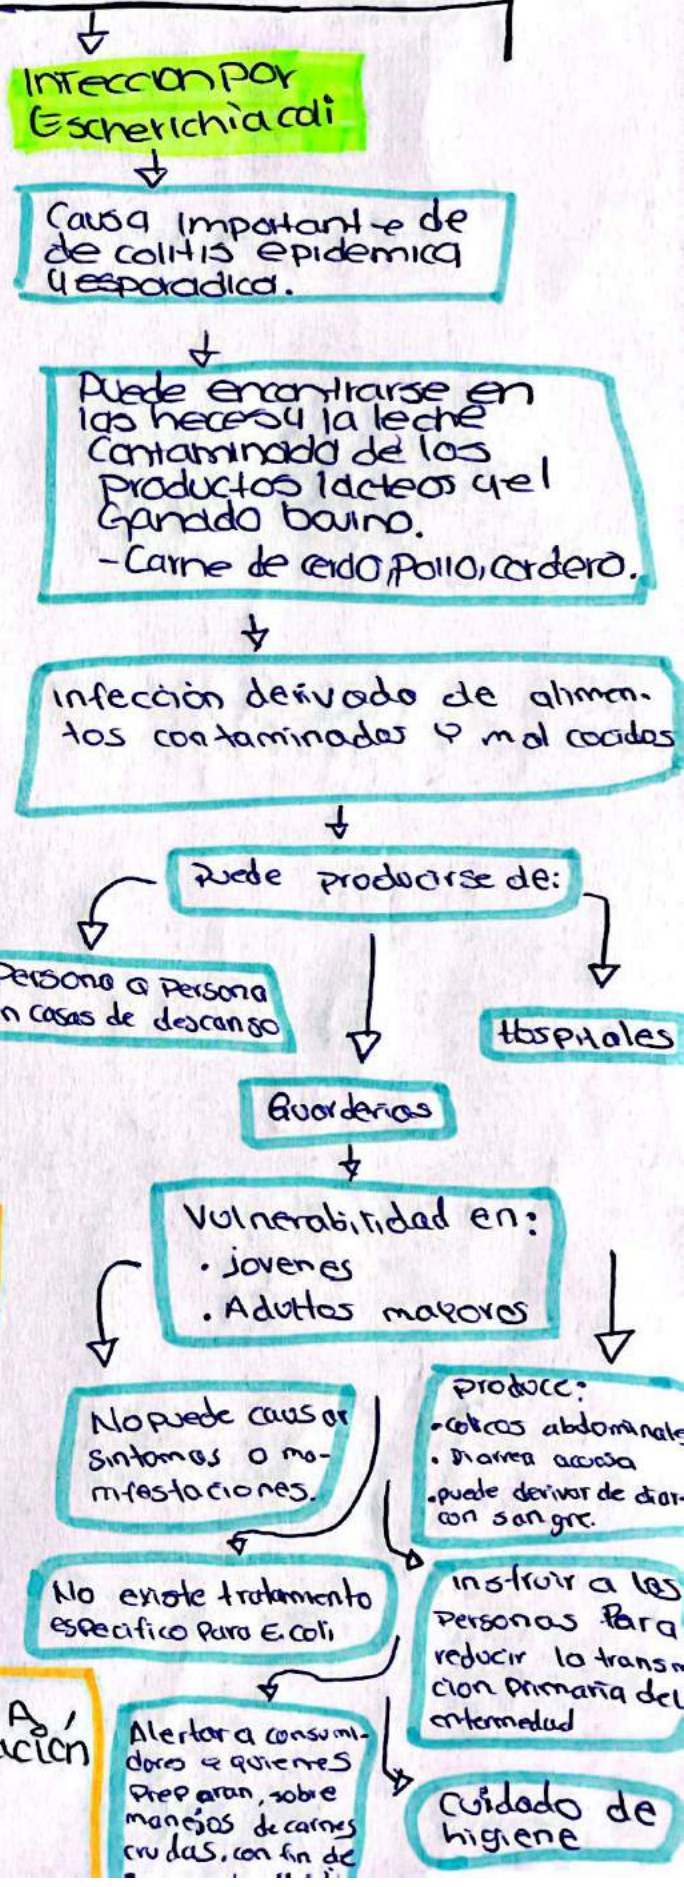 Infección por
Escherichia coli
Causa importante de
de colitis epidemica
y esporadica.
Puede encontrarse en
las heces y la leche
contaminada de los
productos lácteos y el
Ganado bovino.
- Carne de cerdo, pollo, cordero.
infección derivado de alimen-
tos contaminados y mal cocidos
Puede producirse de:
Persona a Persona
n casas de descanso
Hospitales
Guarderias
Vulnerabilidad en:
. jovenes
. Adultos mayores
No puede causar
sintomas o ma-
nifestaciones.
produce:
. colicos abdominales
. Diarrea acuosa
. puede derivar de diar-
con sangre.
No existe tratamiento
especifico para E. coli,
instruir a las
Personas Para
reducir la transm
cion primaria del
enfermedad
A,
ación
Alertar a consumi-
dores e quienes
preparan, sobre
manejos de carnes
crudas, con fin de
cuidado de
higiene